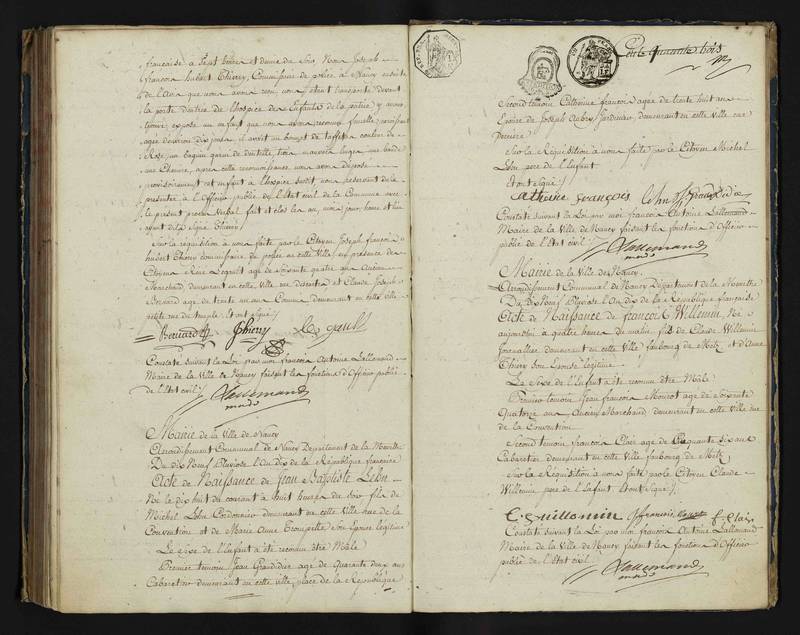 française à Sept heures et demie du Soir, Nous Joseph
françois hubert Thiery, Commissaire de police à Nancy
de l'Avis que nous avons reçu nous étant transporté devant
la porte d'entrée de l'hospice des Enfants de la patrie y avons
trouvé exposé un enfant que nous avons reconnu femelle, paroissant
agée d'environ dix jours, il avoit un bonnet de taffetas couleur de
Rose, un béguin garni de dentelle, trois mauvais linges une bande
une Chemise, après cette reconnoissance nous avons déposé
provisoirement cet enfant à l'hospice susdit nous reservant de le
presenter à l'Officier public de l'état civil de la Commune avec
le present procès Verbal fait et clos les an, mois, jour, heure et lieu
ayant dits signé Thiery.
Sur la requisition à nous faite par le Citoyen Joseph françois
hubert Thiery commissaire de police en cette Ville, en présence des
Citoyens René Legault agé de Soixante quatre ans Ancien
Marchand, demeurant en cette Ville rue et Claude Joseph
Bernard agé de trente un ans Commis demeurant en cette Ville
petite rue du temple. Et ont signé
Bernard Thiery Legault
Constaté suivant la Loi, par moi françois Antoine Lallemand
Maire de la Ville de Nancy faisant les fonctions d'Officier public
de l'Etat civil
Lallemand
Mairie de la Ville de Nancy
Arrondissement Communal de Nancy Département de la Meurthe
Du dix Neuf Pluviose l'An dix de la République française
Acte de Naissance de Jean Baptiste Lehn
Né le dix huit du courant à huit heures du Soir fils de
Michel Lehn Cordonnier demeurant en cette Ville rue de la
Convention et de Marie Anne Trompette son Epouse légitime
Le Sexe de l'Enfant a été reconnu être Mâle
Premier temoin Jean Grandidier agé de Quarante deux ans
Cabaretier demeurant en cette Ville, place de la République
Cent Quarante trois
Second temoin Catherine françois agée de trente huit ans
Epouse de Joseph Aubry Jardinier, demeurant en cette Ville rue
Derrière
Sur la Réquisition à nous faite par le Citoyen Michel
Lehn pere de l'Enfant.
Et ont Signé
Catherine françois Lehn J Grandidie
Constaté suivant la Loi par moi françois Antoine Lallemand
Maire de la Ville de Nancy faisant les fonctions d'Officier
public de l'Etat civil
Lallemand
Mairie de la Ville de Nancy.
Arrondissement Communal de Nancy Département de la Meurthe
Du dix Neuf Pluviose l'An dix de la République française
Acte de Naissance de françois Willemin, Né
aujourd'hui à quatre heures du matin, fils de Claude Willemin
Journallier demeurant en cette Ville faubourg de Metz et d'Anne
Thiery son Epouse légitime.
Le Sexe de l'Enfant a été reconnu être Mâle
Premier temoin Jean françois Mourot agé de Soixante
Quatorze ans Ancien Marchand demeurant en cette Ville rue
de la Convention
Second temoin françois Clair agé de Cinquante six ans
Cabaretier demeurant en cette Ville faubourg de Metz,
Sur la Réquisition à nous faite par le Citoyen Claude
Willemin, pere de l'Enfant. Et ont Signé
C. guillemin f Clair
Constaté suivant la Loi par moi françois Antoine Lallemand
Maire de la Ville de Nancy faisant les fonctions d'Officier
public de l'Etat civil
Lallemand